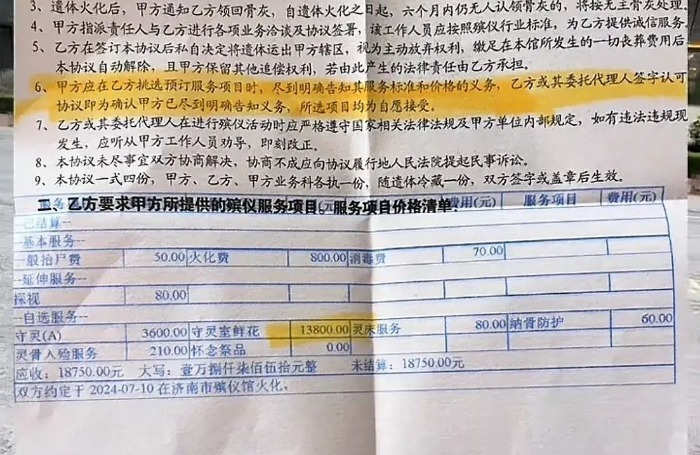 3、遗体火化后，甲方通知乙方领回骨灰，自遗体火化之日起，六个月内仍无人认领骨灰的，将按无主骨灰处理。
4、甲方指派责任人与乙方进行各项业务洽谈及协议签署，该工作人员应按照殡仪行业标准，为乙方提供诚信服务。
5、乙方在签订本协议后私自决定将遗体运出甲方辖区，视为主动放弃权利，缴足在本馆所发生的一切丧葬费用后，
本协议自动解除，且甲方保留其他追偿权利，若由此产生的法律责任由乙方承担。
6、甲方应在乙方挑选预订服务项目时，尽到明确告知其服务标准和价格的义务，乙方或其委托代理人签字认可
协议即为确认甲方已尽到明确告知义务，所选项目均为自愿接受。
7、乙方或其委托代理人在进行殡仪活动时应严格遵守国家相关法律法规及甲方单位内部规定，如有违法违规现
发生，应听从甲方工作人员劝导，即刻改正。
8、本协议未尽事宜双方协商解决，协商不成应向协议履行地人民法院提起民事诉讼。
9、本协议一式四份，甲方、乙方、甲方业务科各执一份，随遗体冷藏一份，双方签字或盖章后生效。
二、乙方要求甲方所提供的殡仪服务项目、服务项目价格清单：
费用(元) 服务项目 费用(元)
--已结算--
--基本服务--
一般抬尸费 50.00 火化费 800.00 消毒费 70.00
--延伸服务--
探视 80.00
--自选服务--
守灵(A) 3600.00 守灵室鲜花 13800.00 灵床服务 80.00 纳骨防护 60.00
灵骨入殓服务 210.00 怀念祭品 0.00
应收：18750.00元 大写：壹万捌仟柒佰伍拾元整 未结算：18750.00元
双方约定于 2024-07-10 在济南市殡仪馆火化。